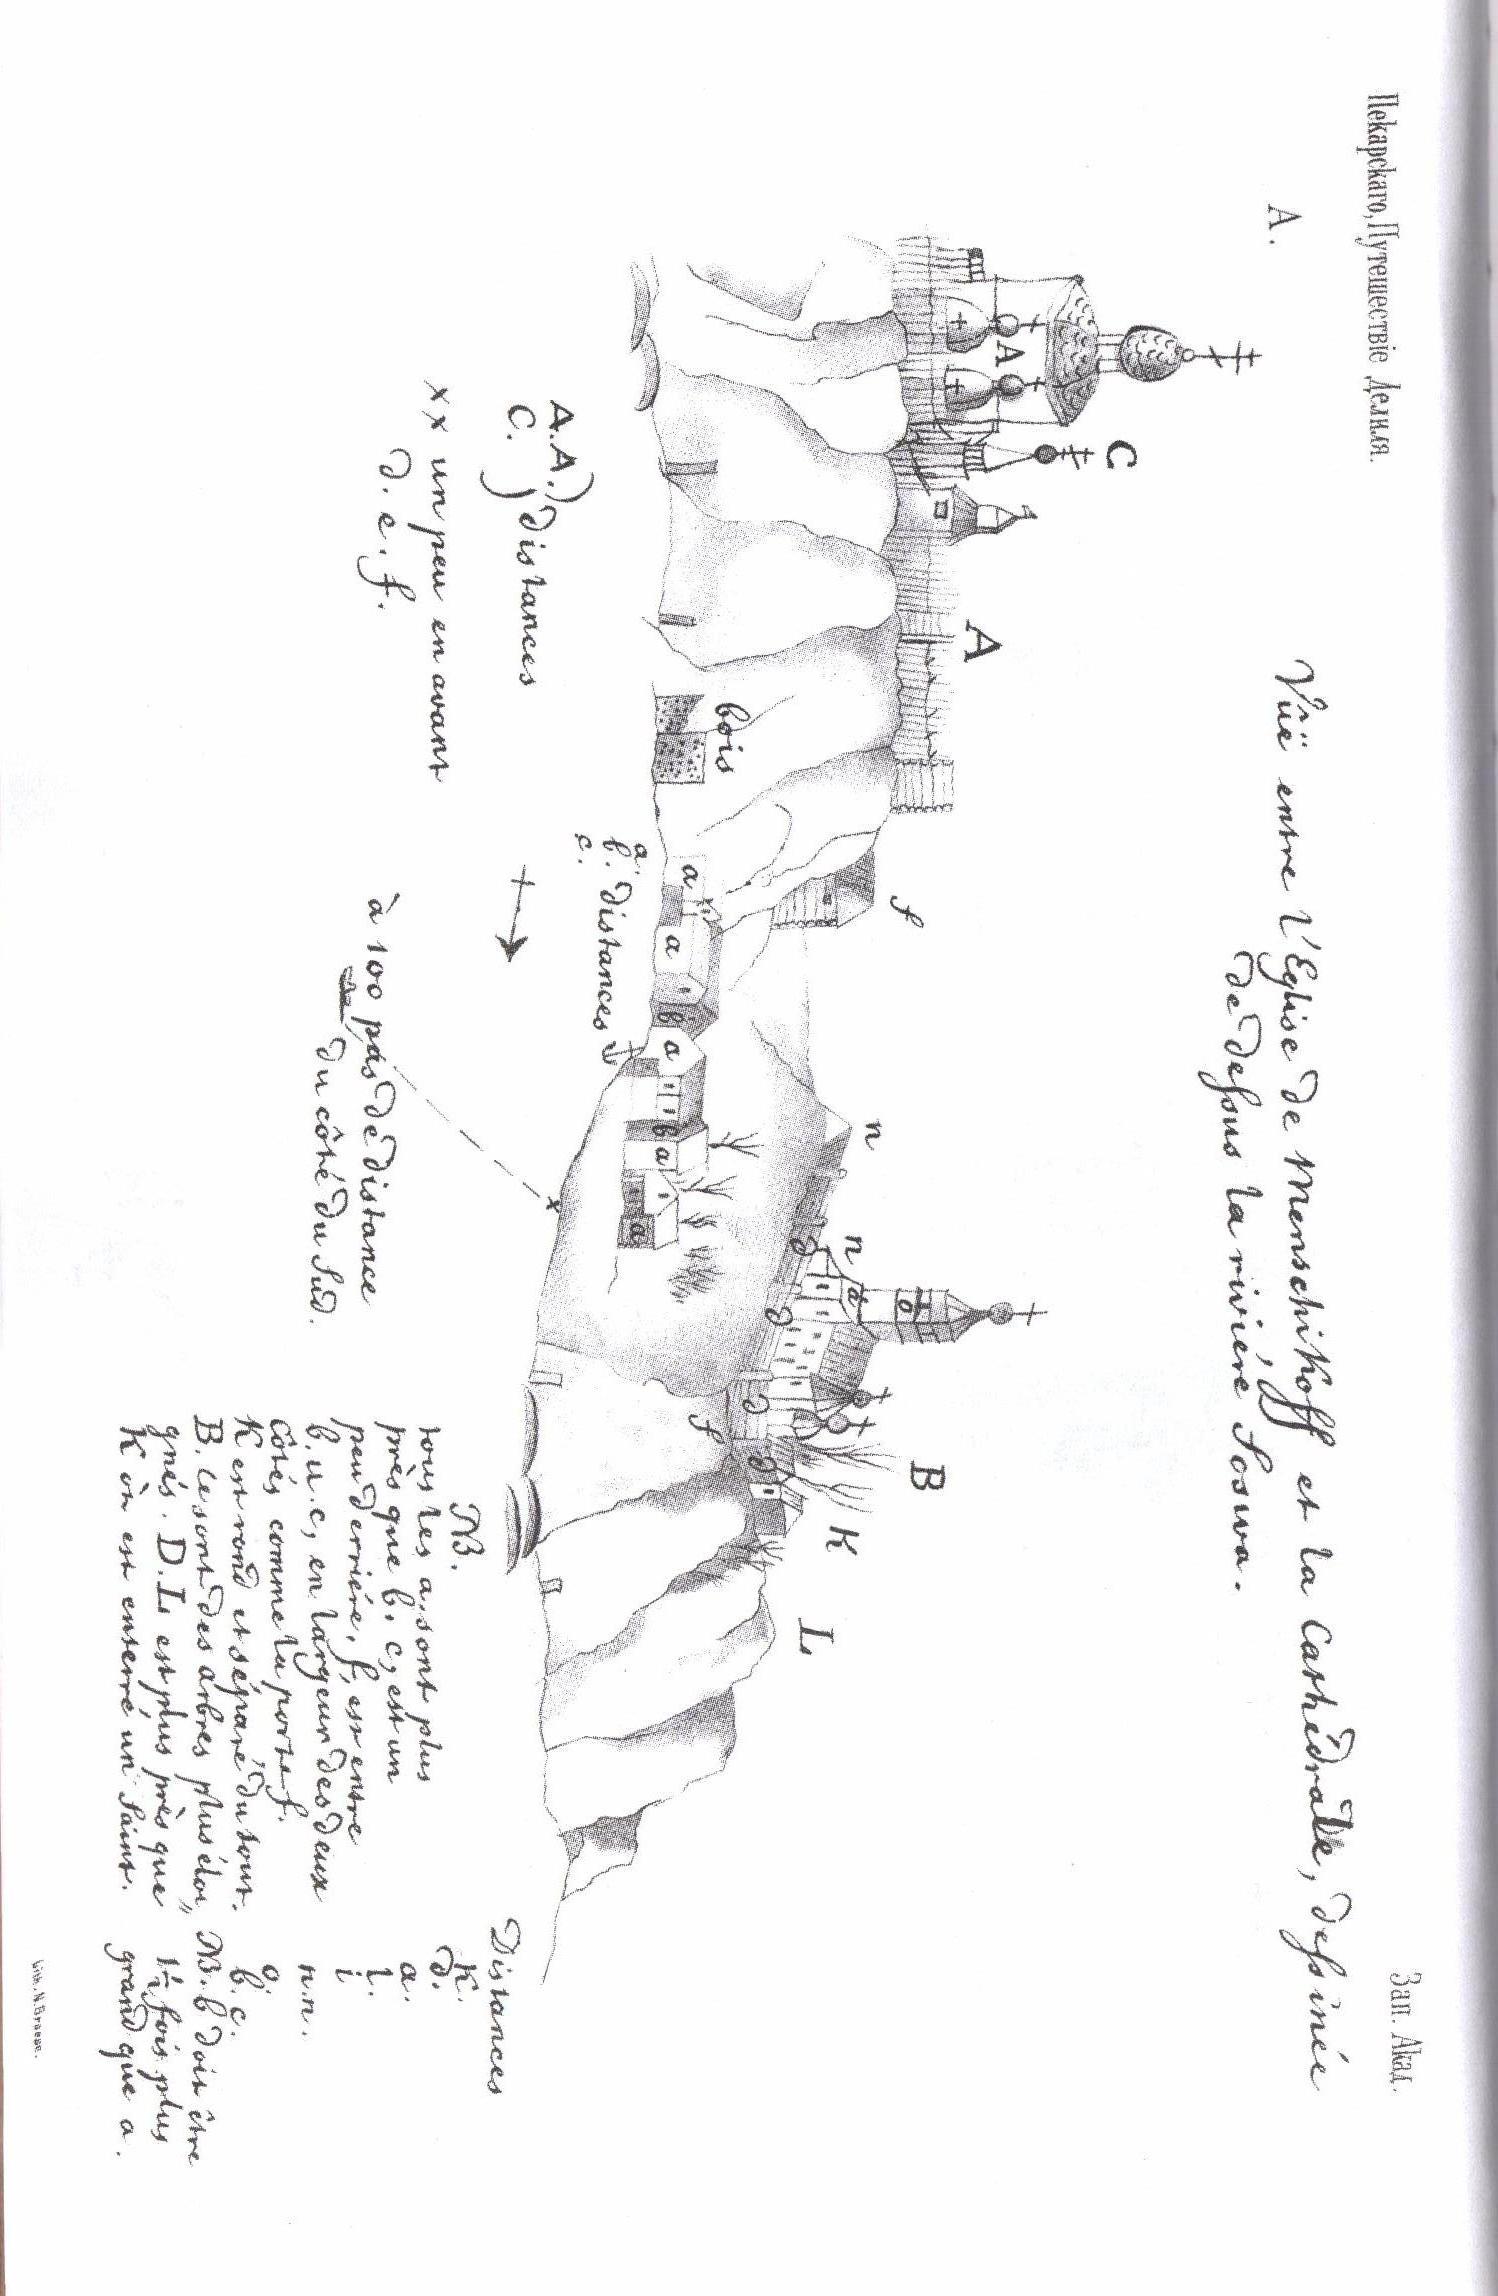 Пекарскаго, Путешествіе Делиля.
Зап. Акад.
A.
Vüë entre l'Eglise de Menschikoff et la Cathédrale, dessinée
de dessus la riviére Soswa.
C
A
A
f
n
n
B
K
L
bois
a
a
b
a
b
a
a
d
d
d
d
f
o
x
A.A.) distances
C. )
xx un peu en avant
d. e. f.
a.
b. distances
c.
à 100 pas de distance
du côté du Sud.
NB.
tous les a. sont plus
près que b. c, est un
peu derriére. f, est entre
b. u. c, en largeur des deux
côtés comme la porte f.
K est rond et séparé du tout.
B. Ce sont des arbres plus éloi„
gnés. D. L. est plus près que
K où est enterré un Saint.
Distances
K.
d.
a.
l.
i
n.n.
o.
b. c.
NB. b doit être
1½ fois plus
grand que a.
Lith. N. Braese.